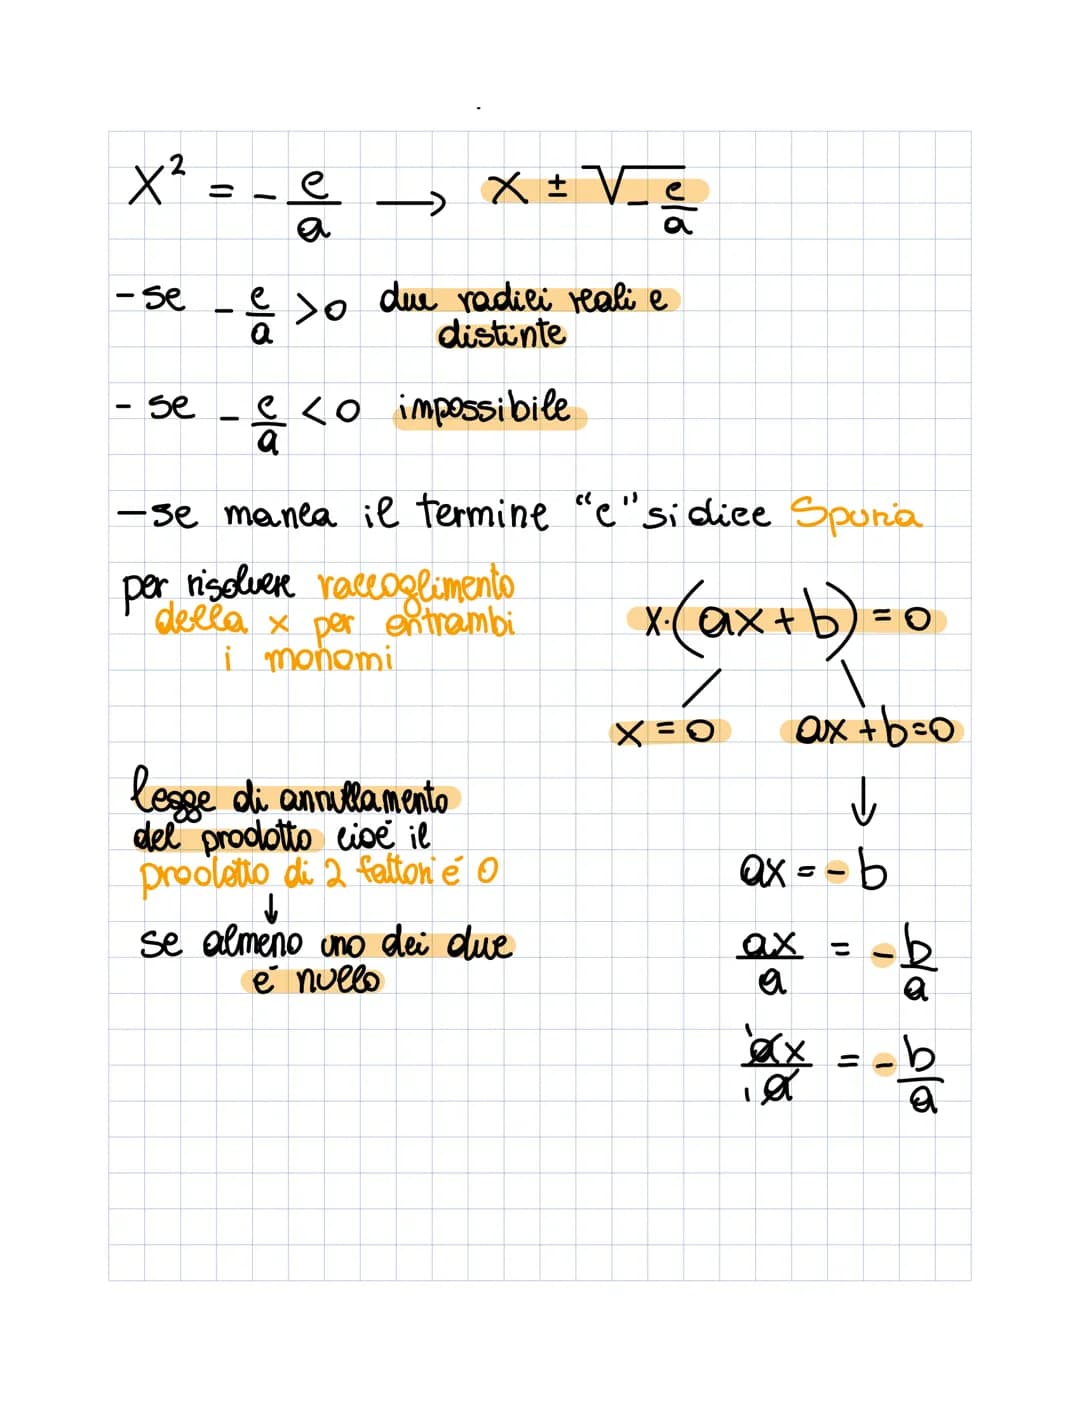 x² = - c/a → x ± √- c/a
- se - c/a > 0 due radici reali e
distinte
- se - c/a < 0 impossibile
- se manca il termine "c" si dice Spuria
per risolvere raccoglimento
della x per entrambi
i monomi
x·(ax+b) = 0
x = 0 ax + b = 0
↓
legge di annullamento
del prodotto cioé il
prodotto di 2 fattori é 0
↓
se almeno uno dei due
é nullo
ax = - b
ax/a = - b/a
¹ax/¹a = - b/a